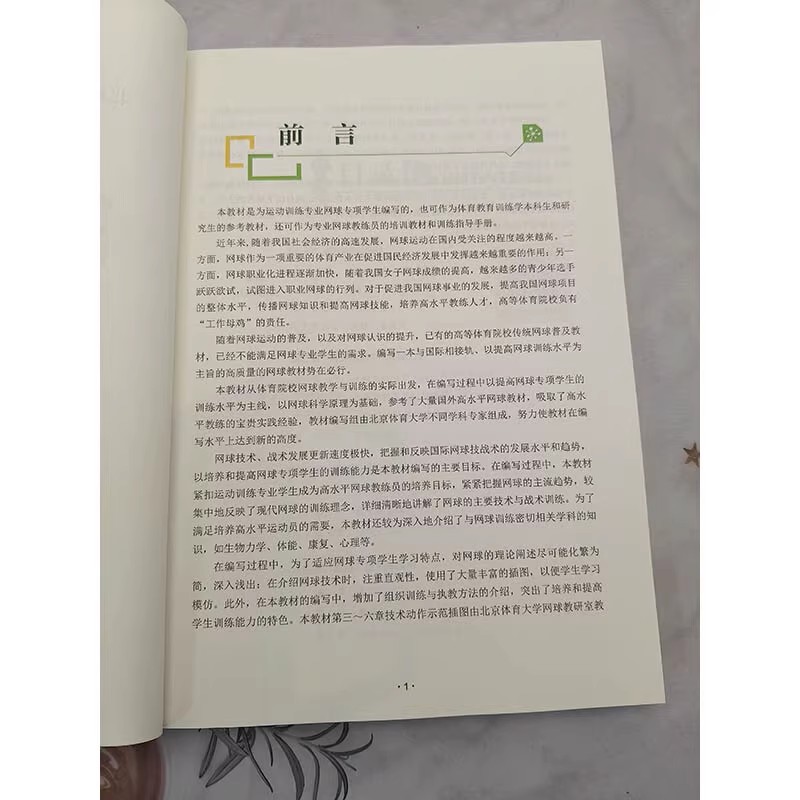 前 言
本教材是为运动训练专业网球专项学生编写的，也可作为体育教育训练学本科生和研
究生的参考教材，还可作为专业网球教练员的培训教材和训练指导手册。
近年来，随着我国社会经济的高速发展，网球运动在国内受关注的程度越来越高。一
方面，网球作为一项重要的体育产业在促进国民经济发展中发挥越来越重要的作用；另一
方面，网球职业化进程逐渐加快，随着我国女子网球成绩的提高，越来越多的青少年选手
跃跃欲试，试图进入职业网球的行列。对于促进我国网球事业的发展，提高我国网球项目
的整体水平，传播网球知识和提高网球技能，培养高水平教练人才，高等体育院校负有
“工作母鸡”的责任。
随着网球运动的普及，以及对网球认识的提升，已有的高等体育院校传统网球普及教
材，已经不能满足网球专业学生的需求。编写一本与国际相接轨、以提高网球训练水平为
主旨的高质量的网球教材势在必行。
本教材从体育院校网球教学与训练的实际出发，在编写过程中以提高网球专项学生的
训练水平为主线，以网球科学原理为基础，参考了大量国外高水平网球教材，吸取了高水
平教练的宝贵实践经验，教材编写组由北京体育大学不同学科专家组成，努力使教材在编
写水平上达到新的高度。
网球技术、战术发展更新速度极快，把握和反映国际网球技战术的发展水平和趋势，
以培养和提高网球专项学生的训练能力是本教材编写的主要目标。在编写过程中，本教材
紧扣运动训练专业学生成为高水平网球教练员的培养目标，紧紧把握网球的主流趋势，较
集中地反映了现代网球的训练理念，详细清晰地讲解了网球的主要技术与战术训练。为了
满足培养高水平运动员的需要，本教材还较为深入地介绍了与网球训练密切相关学科的知
识，如生物力学、体能、康复、心理等。
在编写过程中，为了适应网球专项学生学习特点，对网球的理论阐述尽可能化繁为
简，深入浅出；在介绍网球技术时，注重直观性，使用了大量丰富的插图，以便学生学习
模仿。此外，在本教材的编写中，增加了组织训练与执教方法的介绍，突出了培养和提高
学生训练能力的特色。本教材第三～六章技术动作示范插图由北京体育大学网球教研室教
·1·